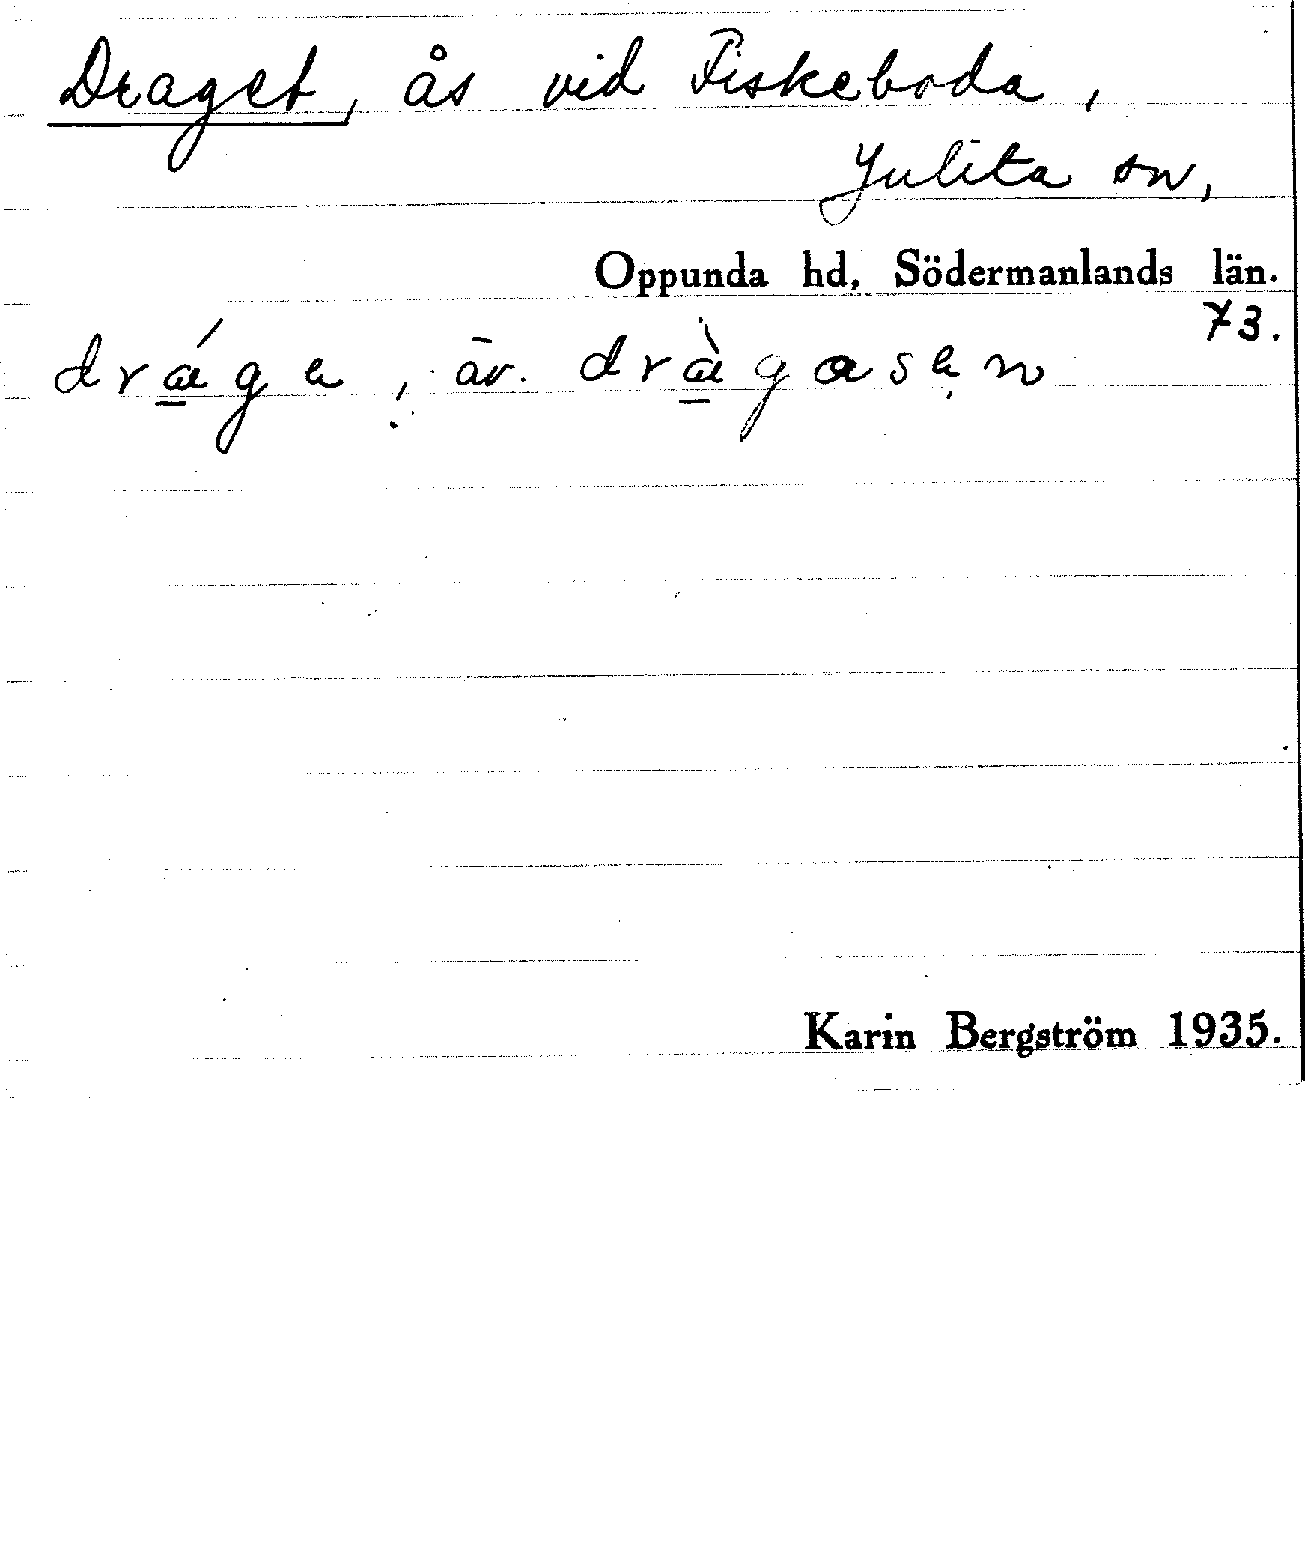 Draget, ås vid Fiskeboda,
Julita sn,
Oppunda hd, Södermanlands län.
73.
drá̲ge, äv. drà̲gasen
Karin Bergström 1935.